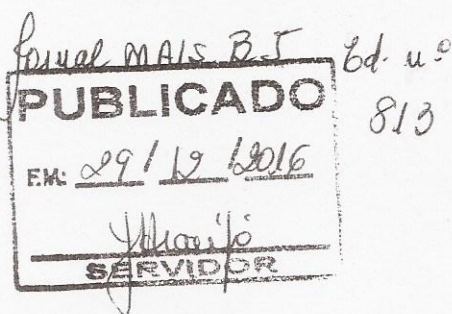 Jornal MAIS B.J Ed. nº
813
PUBLICADO
EM: 29/12/2016
SERVIDOR